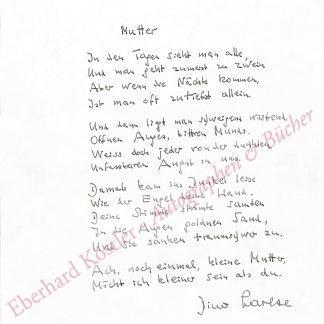 Mutter
In den Tagen sieht man alle,
Und man geht zumeist zu zwein
Aber wenn die Nächte kommen,
Ist man oft zutiefst allein.
Und dann liegt man schweigend wartend,
Offnen Auges, bittren Munds.
Weiss doch jeder von der dunklen
Unfassbaren Angst in uns.
Damals kam ins Dunkel leise
Wie der Engel deine Hand.
Deine Stimme strömte samten
In die Augen goldnen Sand,
Und sie sanken traumschwer zu.
Ach, noch einmal, kleine Mutter,
Möcht ich kleiner sein als du.
Dino Larese
Eberhard Köstler Autographen & Bücher